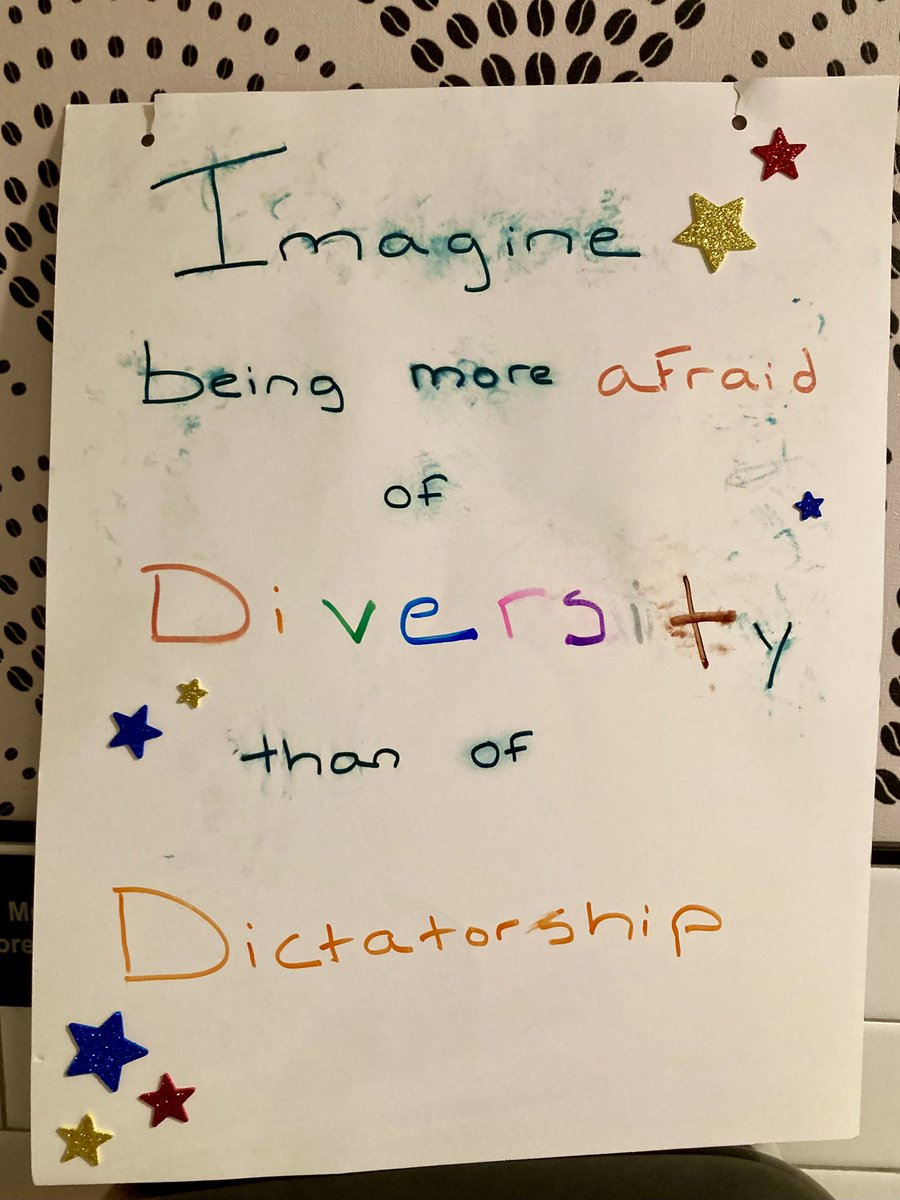 Imagine
being more afraid
of
Diversity
than of
Dictatorship